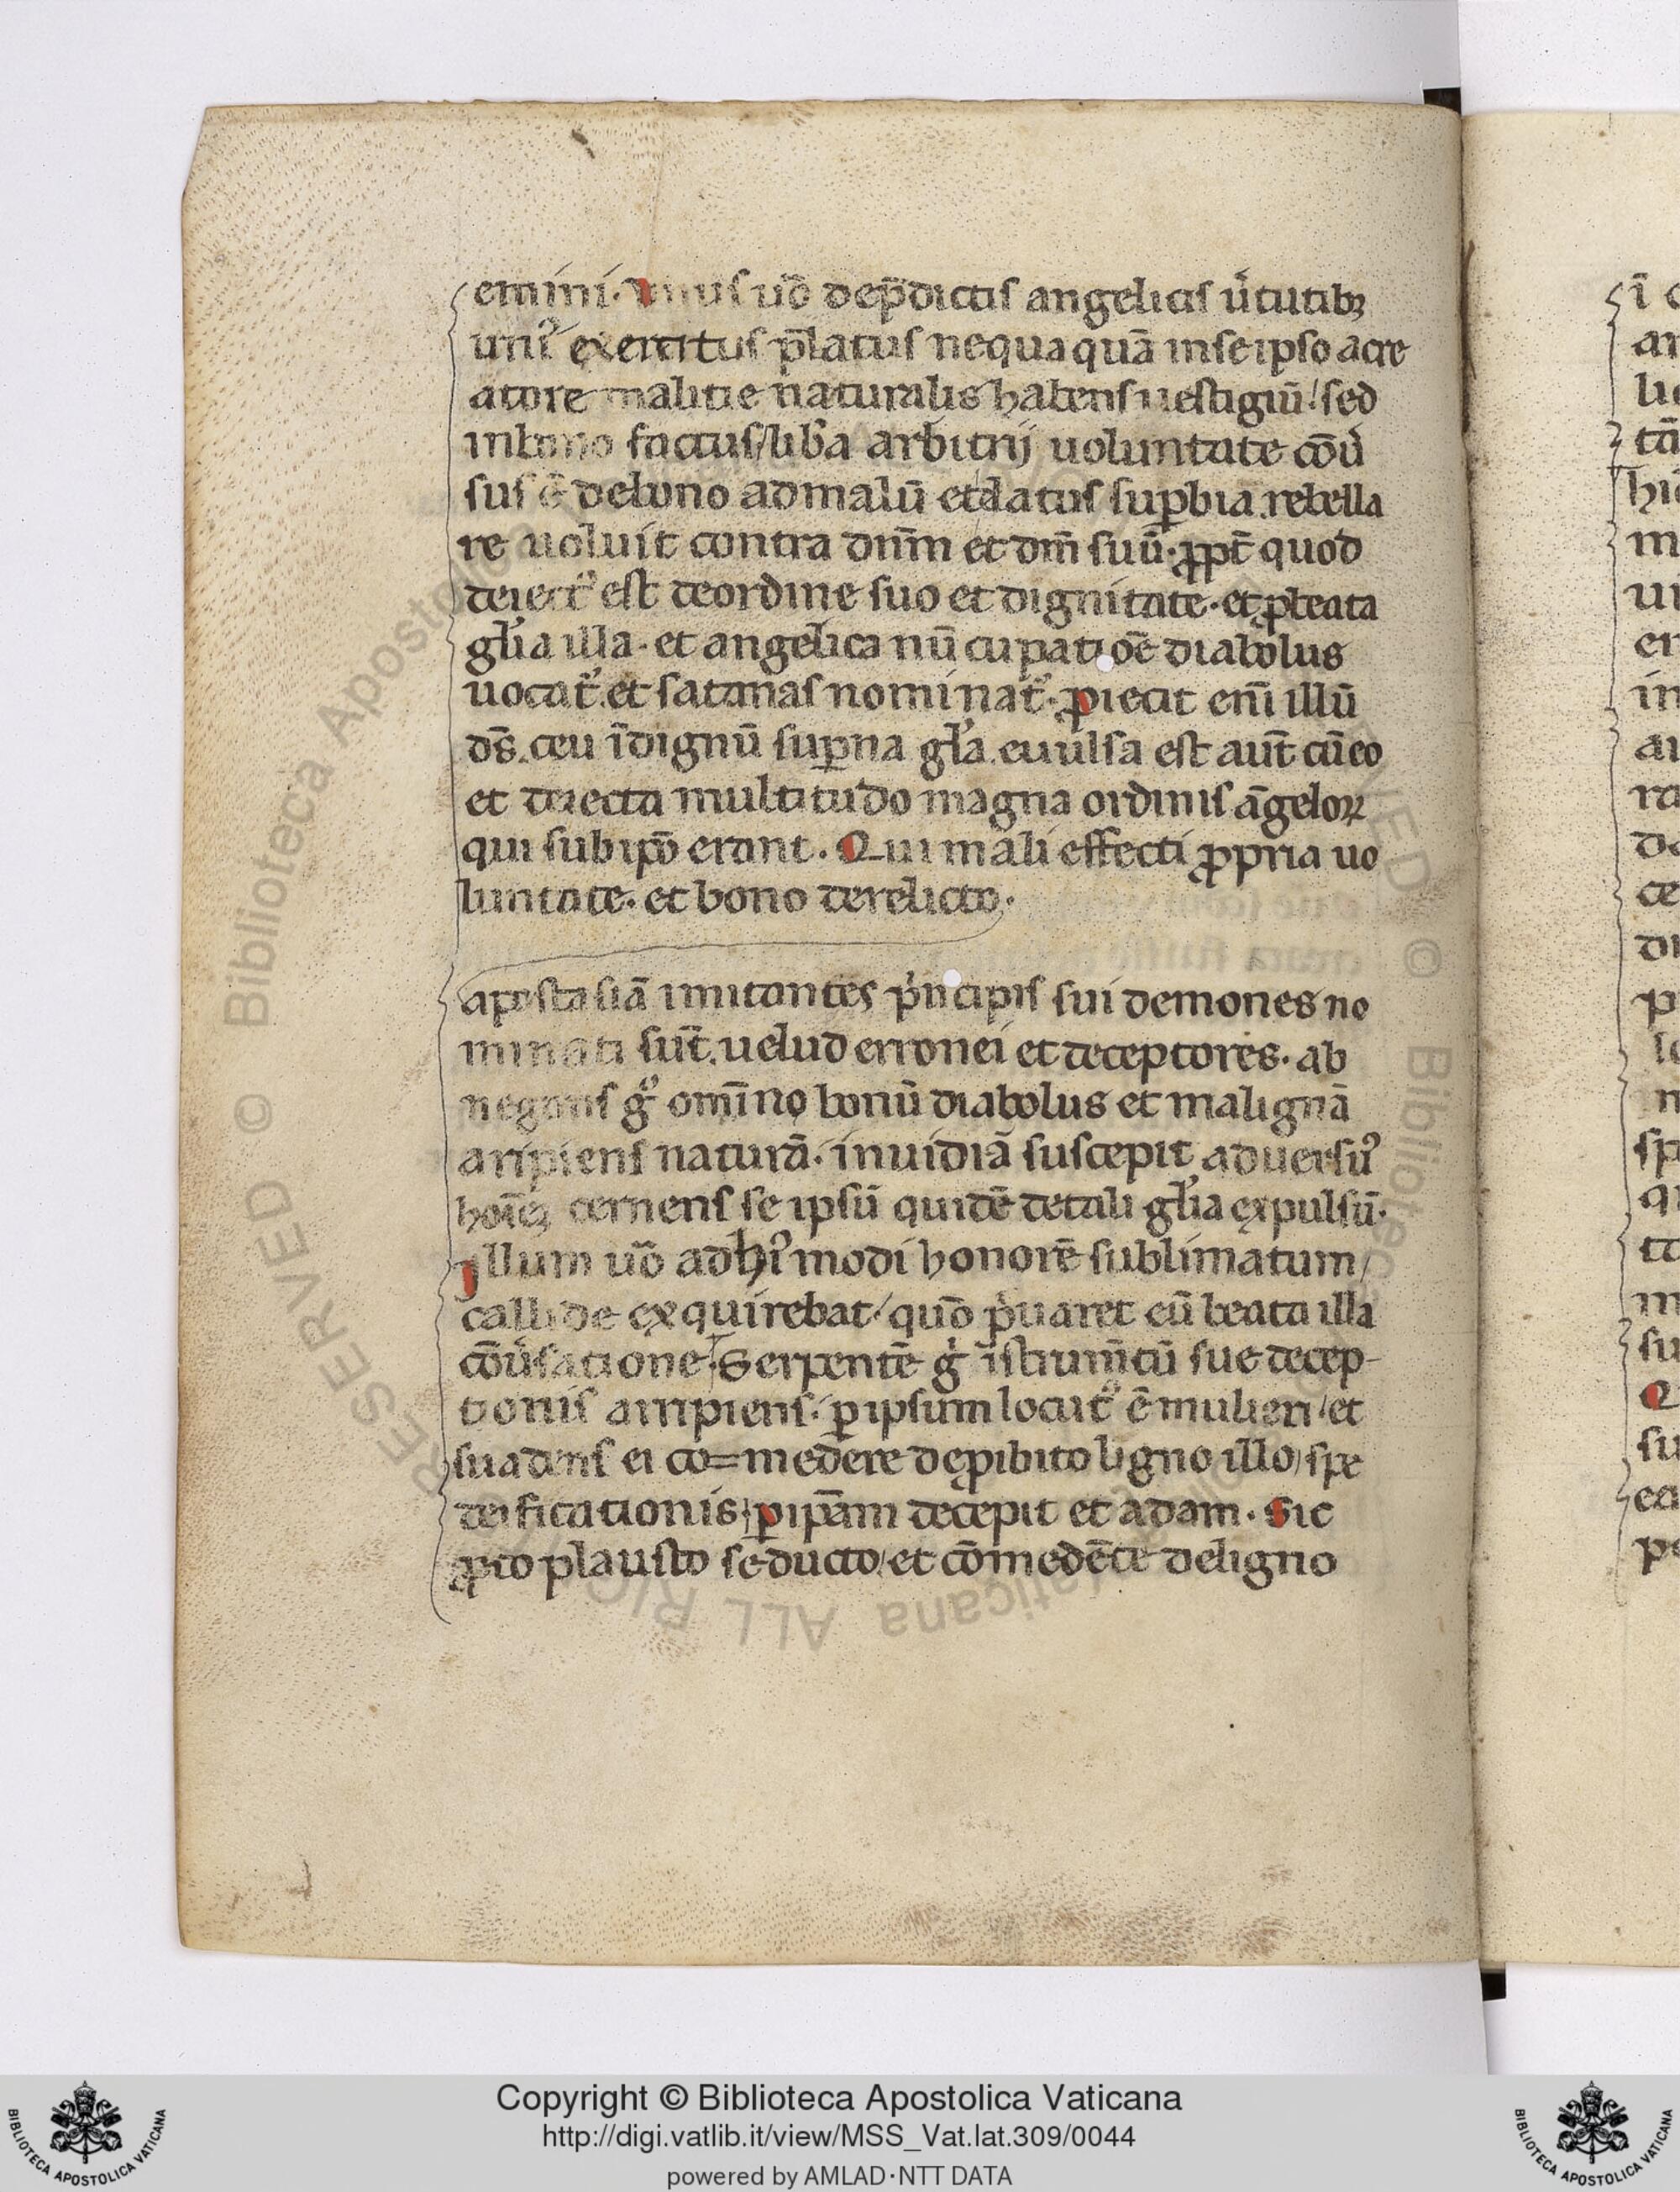 emini. Unus uō dep̄dictis angelicis u̓tutibꝫ
uniꝰ exercitus p̄latus nequaquā inseipso acre
atore malitie naturalis habens uestigiū/ sed
inbono factus/lib̓a arbitrij uoluntate cōu̓
sus ē debono admalū et elatus suꝑbia.rebella
re uoluit contra dn̄m et dm̄ suū.ꝓpt̄ quod
deiectꝰ est deordine suo et dignitate.et ꝓbeata
gl̓ia illa. et angelica nūcupatiōe diabolus
uocat᷑.et satanas nominat᷑.ꝓiecit eni̅ illū
ds̄.ceu i̅dignū suꝑna gl̓a.euulsa est aut̄ cūeo
et deiecta multitudo magna ordinis āgeloꝝ
qui sub ip̄o erant. Qui mali effecti ꝓpria uo
luntate. et bono derelicto.
apostasiā imitantes p̓ncipis sui demones no
minati sut̄.uelud erronei et deceptores. ab
negans g̊ omi̅no bonū diabolus et malignā
aripiens naturā. inuidiā suscepit aduersuꝰ
hoi̅eꝫ cernens se ipsū quidē detali gl̓ia expulsū.
Illum uō adhiꝰmodi honorē sublimatum/
callide exquirebat/ quō p̓uaret eū beata illa
cōu̓satione. Serpentē g̊ i̅strum̄tū sue decep-
tionis arripiens. ꝑ ipsum locutꝰ ē mulieri/et
suadens ei co=medere deꝓibito ligno illo/spe
deificationis/ꝑ ip̄am decepit et adam. Sic
ꝓto plausto seducto/et cōmedēte deligno
Copyright © Biblioteca Apostolica Vaticana
http://digi.vatlib.it/view/MSS_Vat.lat.309/0044
powered by AMLAD·NTT DATA
BIBLIOTECA APOSTOLICA VATICANA
BIBLIOTECA APOSTOLICA VATICANA